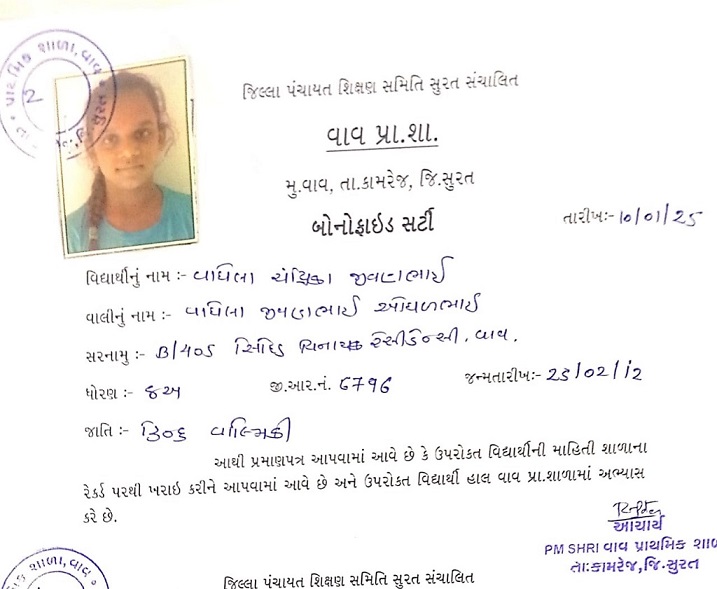 પ્રાથમિક શાળા, વાવ
2
જિ. સુરત
જિલ્લા પંચાયત શિક્ષણ સમિતિ સુરત સંચાલિત
વાવ પ્રા.શા.
મુ.વાવ, તા.કામરેજ, જિ.સુરત
બોનોફાઇડ સર્ટી
તારીખઃ- 10/01/25
વિદ્યાર્થીનું નામ :- વાઘેલા ચંદ્રિકા જીવણભાઈ
વાલીનું નામ :- વાઘેલા જીવણભાઈ ઓઘળભાઈ
સરનામુ :- B/405 સિધ્ધિ વિનાયક રેસીડેન્સી, વાવ.
ધોરણ :- ૬અ જી.આર.નં. 6796 જન્મતારીખઃ- 25/02/12
જાતિ :- હિન્દુ વાલ્મિકી
આથી પ્રમાણપત્ર આપવામાં આવે છે કે ઉપરોકત વિદ્યાર્થીની માહિતી શાળાના
રેકર્ડ પરથી ખરાઇ કરીને આપવામાં આવે છે અને ઉપરોકત વિદ્યાર્થી હાલ વાવ પ્રા.શાળામાં અભ્યાસ
કરે છે.
આચાર્ય
PM SHRI વાવ પ્રાથમિક શાળ
તાઃકામરેજ,જિ.સુરત
શાળા, વાવ
જિલ્લા પંચાયત શિક્ષણ સમિતિ સુરત સંચાલિત